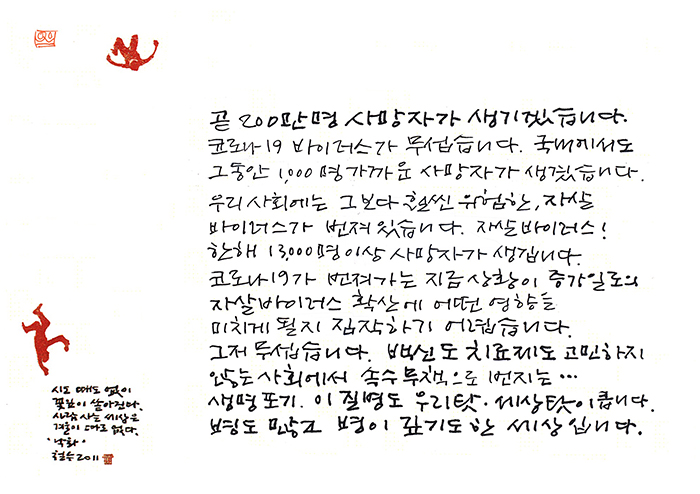 곧 200만명 사망자가 생기겠습니다.
코로나19 바이러스가 무섭습니다. 국내에서도
그동안 1,000명 가까운 사망자가 생겼습니다.
우리 사회에는 그보다 훨씬 위험한, 자살
바이러스가 번져 있습니다. 자살바이러스!
한해 13,000명이상 사망자가 생깁니다.
코로나19가 번져가는 지금 상황이 증가일로의
자살바이러스 확산에 어떤 영향을
미치게 될지 짐작하기 어렵습니다.
그저 무섭습니다. 백신도 치료제도 고민하지
않는 사회에서 속수무책으로 번지는…
생명포기. 이 질병도 우리탓·세상탓이 큽니다.
병도 많고 병이 깊기도 한 세상입니다.
시도 때도 없이
꽃잎이 쏟아진다.
사람 사는 세상은
겨울이 따로 없다.
'낙화'
철수 2011